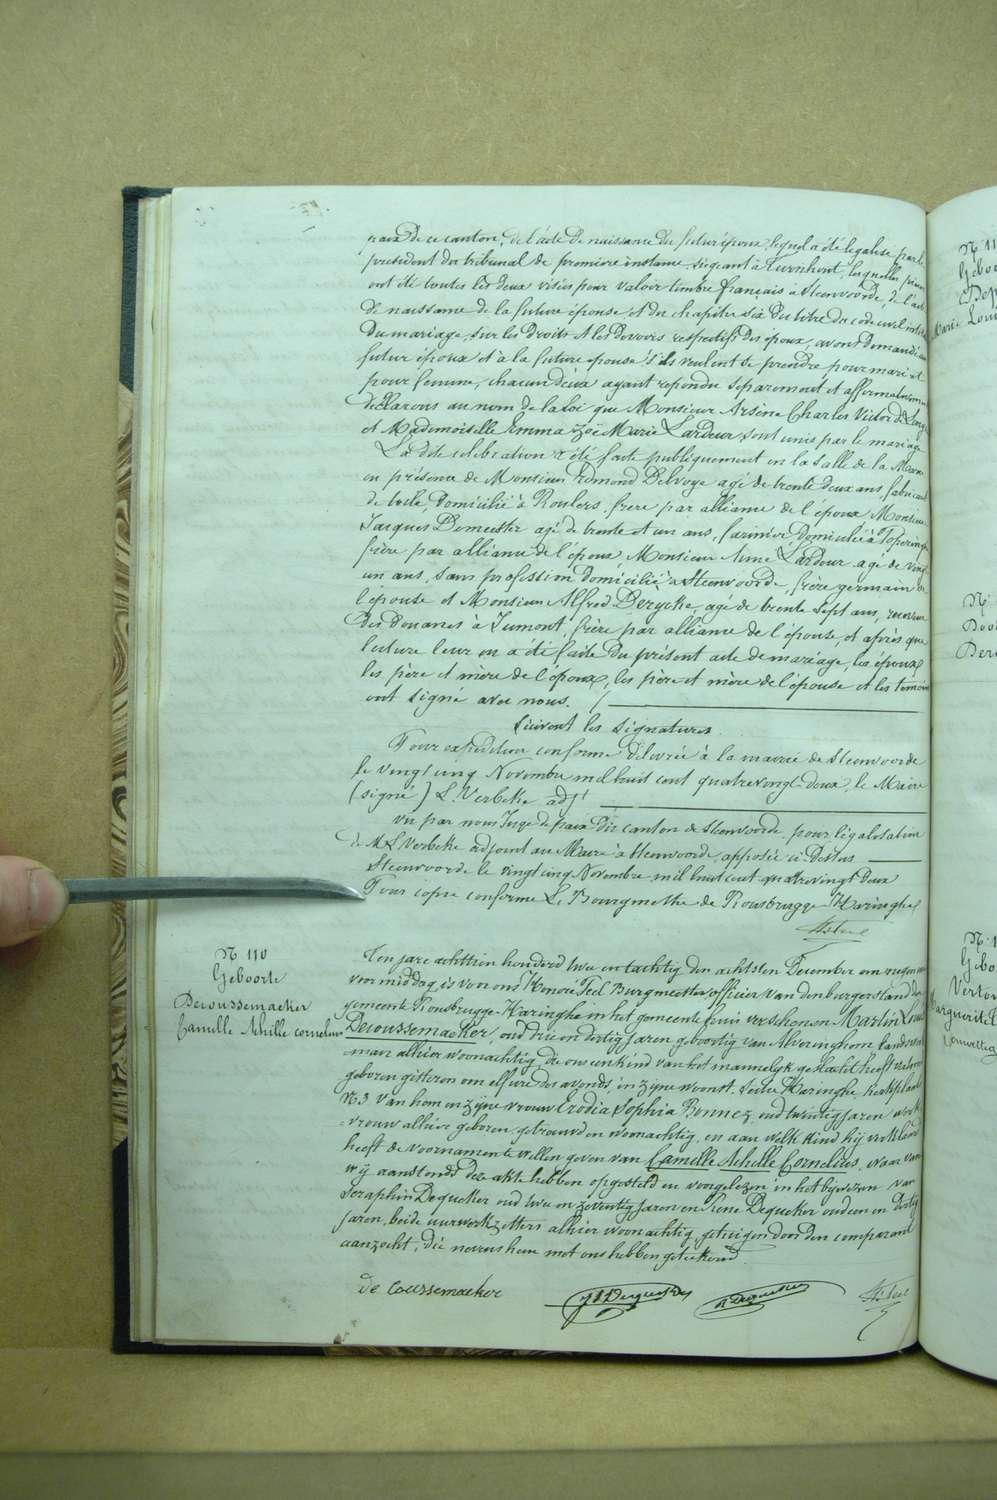 paix de ce canton, de l'acte de naissance du futur époux, lequel a été légalisé par le
président du tribunal de première instance siégeant à Turnhout, lesquelles pièces
ont été toutes les deux visées pour valoir timbre français à Steenvoorde, de l'acte
de naissance de la future épouse et du chapitre six du titre du code civil intitulé
Du mariage, sur les droits et les devoirs respectifs des époux, avons demandé au
futur époux et à la future épouse s'ils veulent se prendre pour mari et
pour femme, chacun d'eux ayant répondu séparément et affirmativement
déclarons au nom de la loi que Monsieur Arsène Charles Victor de
et Mademoiselle Emma Zoë Marie Lardeur, sont unis par le mariage
La dite célébration a été faite publiquement en la salle de la Mairie
en présence de Monsieur Edmond Delvoye agé de trente deux ans fabricant
de toile, domicilié à Roulers, frère par alliance de l'époux Monsieur
Jacques Demeester agé de trente et un ans, farinier domicilié à Poperinghe
frère par alliance de l'époux Monsieur Aimé Lardeur agé de vingt
un ans, sans profession domicilié à Steenvoorde, frère germain de
l'épouse et Monsieur Alfred Derycke, agé de trente sept ans, receveur
des Douanes à Jeumont, frère par alliance de l'épouse, et après que
lecture leur en a été faite du présent acte de mariage, les époux
les père et mère de l'époux, les père et mère de l'épouse et les témoins
ont signé avec nous.
Suivent les signatures.
Pour expédition conforme délivrée à la mairie de Steenvoorde
le vingt cinq Novembre mil huit cent quatrevingt deux, le Maire
(signé) L. Verbeke adjt
Vu par nous Juge de paix du canton de Steenvoorde, pour légalisation
de M. L. Verbeke adjoint au Maire à Steenvoorde, apposée ci dessus
Steenvoorde le vingt cinq Novembre mil huit cent quatrevingt deux
Pour copie conforme Le Bourgmestre de Rousbrugge-Haringhe
N 110
Geboorte
Decoussemaeker
Camille Achille Cornelius
Ten jare achttien honderd twee en tachtig den achtsten December om negen uren
voormiddag, is voor ons Honoré Feel Burgmeester officier van den burgerstand der
gemeente Rousbrugge-Haringhe in het gemeentehuis verschenen Martin Louis
Decoussemaeker, oud drie en dertig jaren geboortig van Alveringhem landsman
alhier woonachtig, die ons een kind van het mannelijk geslacht heeft
geboren gisteren om elf ure des avonds in zijne woonst, sectie Haringhe, kerkplaats
N.3 van hem en zijne vrouw Erodia Sophia Bonnez, oud twintig jaren werk
vrouw alhier geboren, getrouwd en woonachtig, en aan welk kind hij verklaard
heeft de voornamen te willen geven van Camille Achille Cornelius, waar van
wij aanstonds dez akte hebben opgesteld en voorgelezen in het bijwezen van
Seraphin Dequeker oud twee en zeventig jaren en Irené Dequeker oud een en dertig
jaren, beide uurwerkzetters alhier woonachtig, getuigen door den comparant
aanzocht, die nevens hem met ons hebben geteekend.
de Coussemaeker